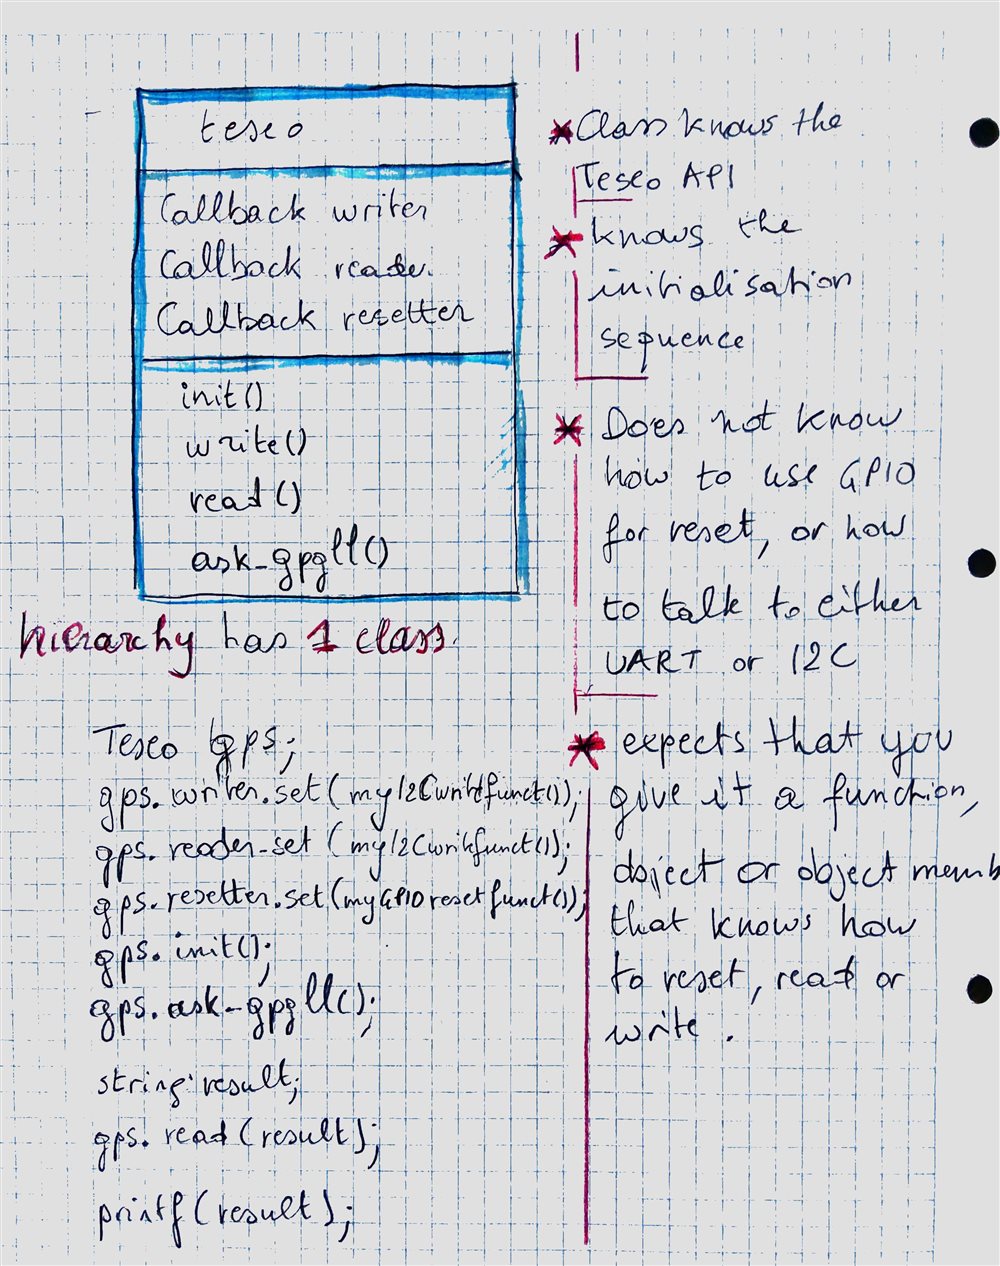 teseo
Callback writer
Callback reader
Callback resetter
init()
write()
read()
ask_gpgll()
hierarchy has 1 class.
Teseo gps;
gps.writer.set(myI2Cwritefunct());
gps.reader.set (myI2Cwritefunct();
gps.resetter.set(myGPIOresetfunct());
gps.init();
gps.ask_gpgll();
string result;
gps.read(result);
printf(result);
* Class knows the
Teseo API
* knows the
initialisation
sequence
* Does not know
how to use GPIO
for reset, or how
to talk to either
UART or I2C
* expects that you
give it a function,
object or object memb
that knows how
to reset, read or
write.